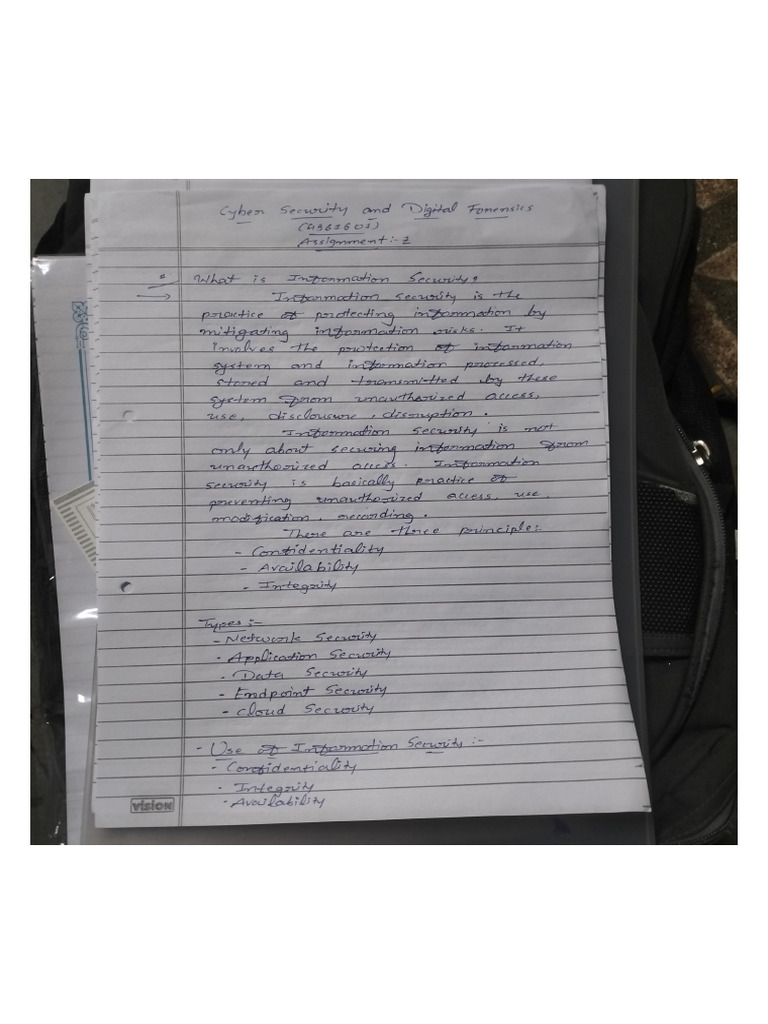 Cyber Security and Digital Forensics
Assignment:-
What is Information Security?
→ Information security is the
practice of protecting information by
mitigating information risks. It
involves the protection of information
system and information processed,
stored and transmitted by these
system from unauthorized access,
use, disclousure, disruption.
Information security is not
only about securing information from
unauthorized access. Information
security is basically practice of
preventing unauthorized access, use,
modification, recording.
There are three principle:-
- Confidentiality
- Availability
- Integrity
Types :-
- Network Security
- Application Security
- Data Security
- Endpoint Security
- Cloud Security
- Use of Information Security :-
- Confidentiality
- Integrity
- Availability
vision